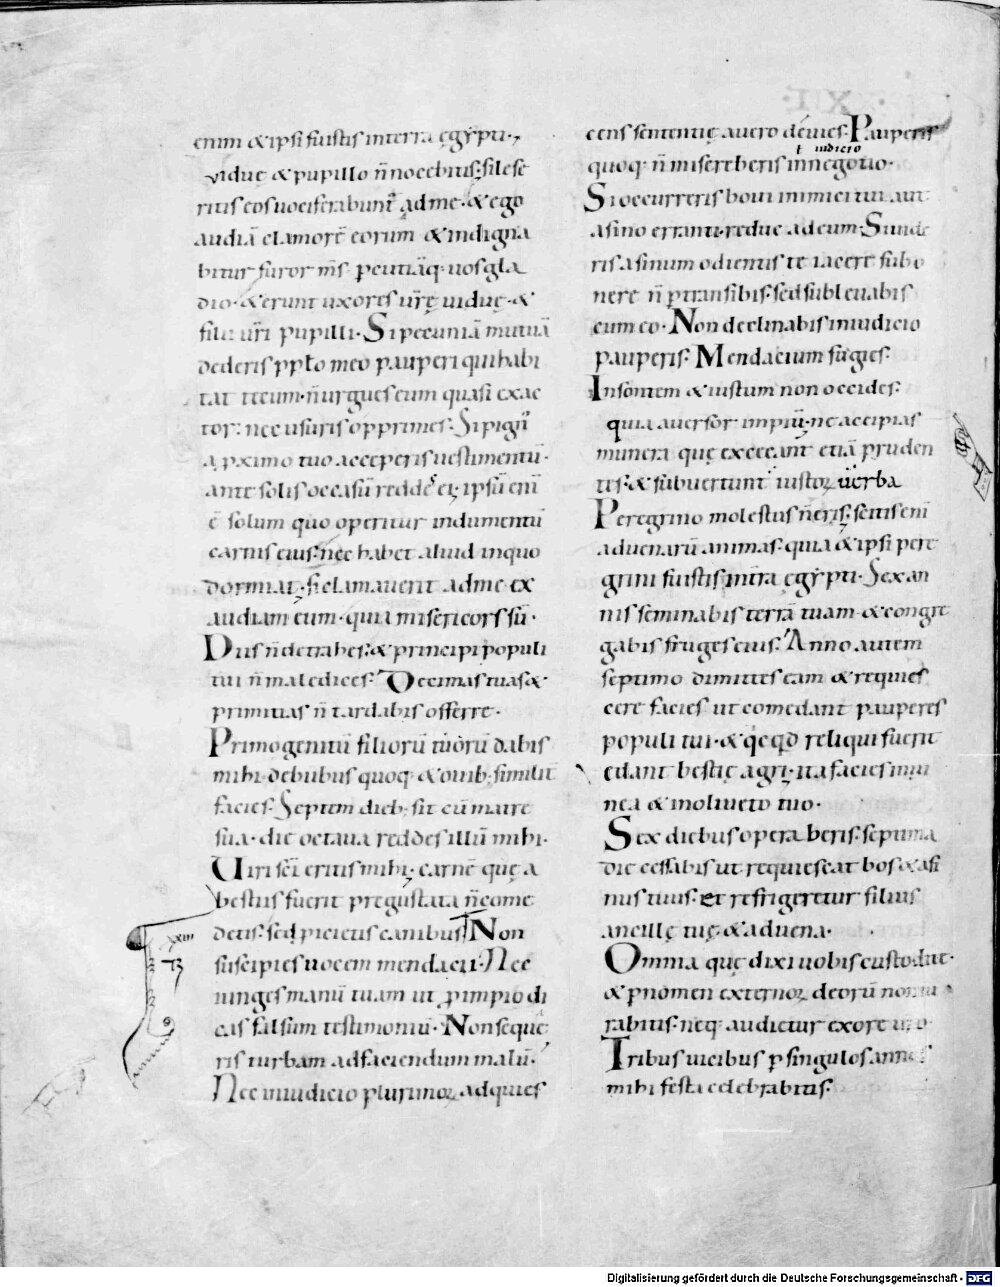 enim & ipsi fuistis in terra ęgẏpti·,
viduę & pupillo n̄ nocebitis; si lese
ritis eos uociferabunt᷑ ad me· & ego
audiā clamorē eorum & indigna
bitur furor m̄s· percutiāq· uos gla
dio· & erunt uxores ur̄ę viduę· &
filii ur̄i pupilli· Si pecuniā mutuā
dederis pp̄lo meo pauperi qui habi
tat tecum· n̄ urgues eum quasi exac
tor· nec usuris opprimes· Si pign᷑
a pximo tuo acceperis uestimentū·
ante solis occasū reddes ei; ipsū enī
ē solum quo operitur indumentū
carnis eius· nec habet aliud in quo
dormiat· si clamauerit ad me ex
audiam eum· quia misericors sū·
Diis n̄ detrahes· & principi populi
tui n̄ maledices· Decimas tuas &
primitias n̄ tardabis offerre·
Primogenitū filiorū tuorū dabis
mihi· de bubus quoq· & ouib; simili᷑
facies· Septem dieb; sit cū matre
sua· die octaua reddes illū mihi·
Uiri sc̄i eritis mihi; carnē quę a
bestiis fuerit pregustata n̄ come
detis· sed picietis canibus Non
xxiii
suscipies uocem mendacii· Nec
iunges manū tuam ut p impio di
cas falsum testimoniū· Non seque
ris turbam ad faciendum malū·
Nec in iudicio plurimoꝝ adquies
cens sententię a uero deuies· Pauperis
ł iudicio
quoq· n̄ misereberis in negotio·
Si occurreris boui inimici tui aut
asino erranti· reduc ad eum· Si uide
ris asinum odientis te iacere sub o
nere n̄ ptransibis· sed subleuabis
cum eo· Non declinabis in iudicio
pauperis· Mendacium fugies·
Insontem & iustum non occides·
quia auersor impiū; ne accipias
munera quę excecant etiā pruden
tes· & subuertunt iustoꝝ uerba
Peregrino molestus n̄ eris· scitis enī
aduenarū animas· quia & ipsi pere
grini fuistis in tr̄a ęgẏpti· Sex an
nis seminabis terrā tuam· & congre
gabis fruges eius· Anno autem
septimo dimittes eam & requies
cere facies ut comedant pauperes
populi tui· & q̇cq̇d reliqui fuerit
edant bestię agri; ita facies in ui
nea & in oliueto tuo·
Sex diebus operaberis· septima
die cessabis ut requiescat bos & asi
nus tuus· et refrigeretur filius
ancillę tuę· & aduena·
Omnia quę dixi uobis custodite·
& p nomen externoꝝ deorū non iu
rabitis· neq· audietur ex ore uro
Tribus uicibus p singulos annos
mihi festa celebrabitis·
Digitalisierung gefördert durch die Deutsche Forschungsgemeinschaft · DFG